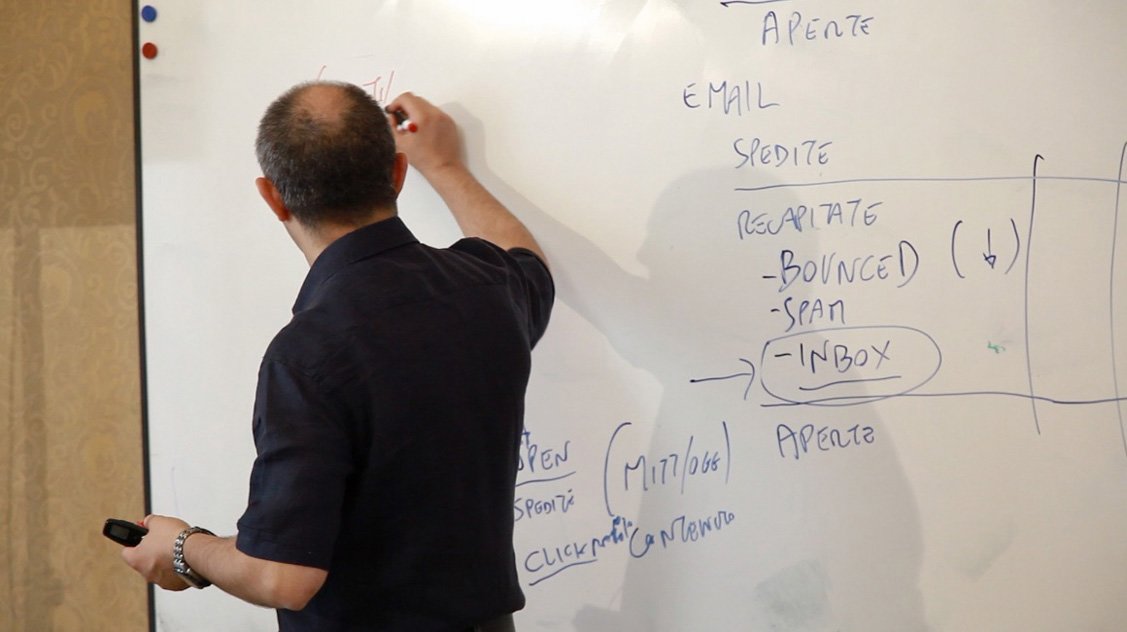 APERTE
EMAIL
SPEDITE
RECAPITATE
-BOUNCED (↓)
-SPAM
→ -INBOX
APERTE
OPEN (MITT/OGG)
SPEDITE
CLICK CONTENUTO